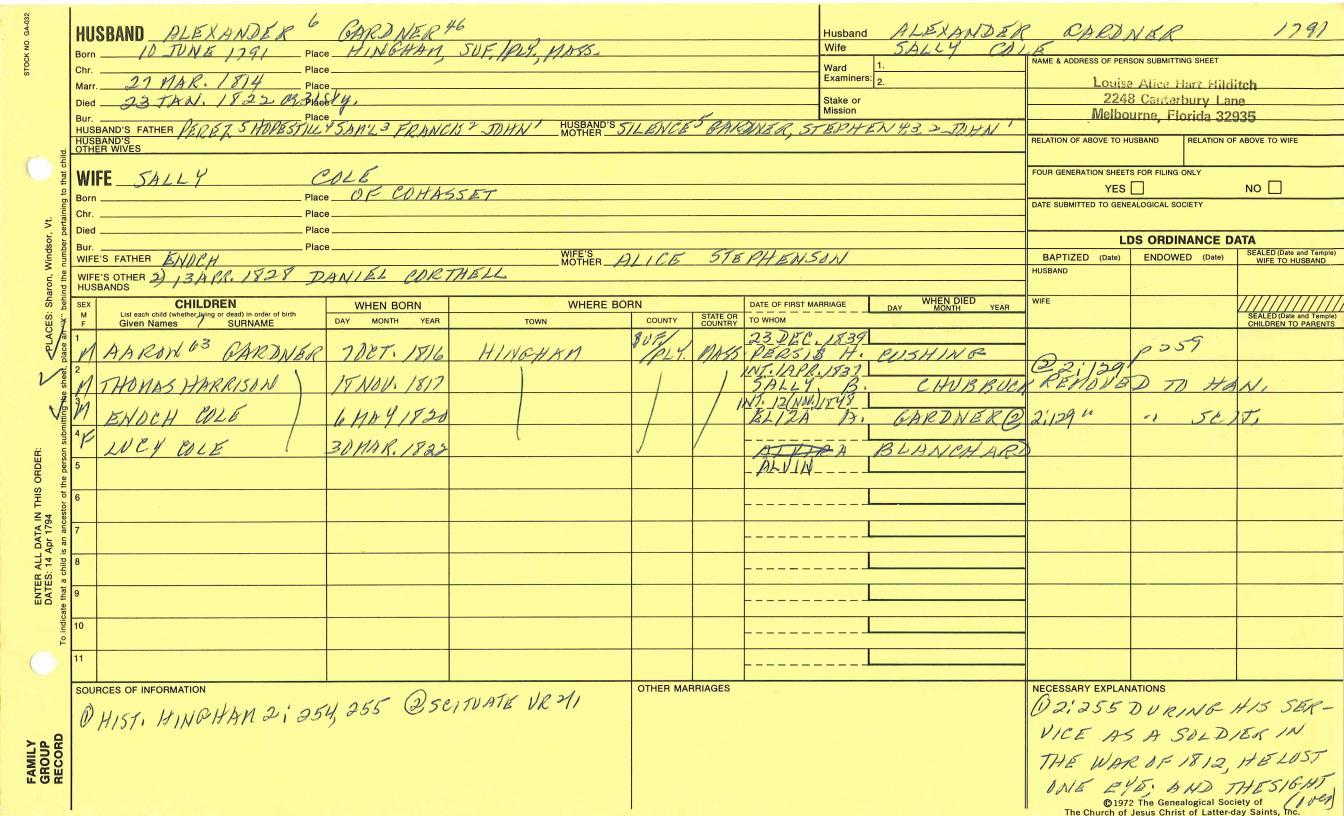 STOCK NO. GA-032
HUSBAND ALEXANDER 6 GARDNER 46
Born 10 JUNE 1791 Place HINGHAM, SUF./PLY., MASS.
Chr. Place
Marr. 27 MAR. 1814 Place
Died 23 JAN. 1822 Place
Bur. Place
HUSBAND'S FATHER PEREZ 5 HOPESTILL 4 SAM'L 3 FRANCIS 2 JOHN 1 HUSBAND'S MOTHER SILENCE 5 GARDNER, STEPHEN 4,3,2 JOHN 1
HUSBAND'S OTHER WIVES
WIFE SALLY COLE
Born Place OF COHASSET
Chr. Place
Died Place
Bur. Place
WIFE'S FATHER ENOCH WIFE'S MOTHER ALICE STEPHENSON
WIFE'S OTHER HUSBANDS 2) 13 APR. 1828 DANIEL CORTHELL
Husband ALEXANDER GARDNER 1791
Wife SALLY COLE
Ward Examiners: 1.
2.
Stake or Mission
NAME & ADDRESS OF PERSON SUBMITTING SHEET
Louise Alice Hart Hilditch
2248 Canterbury Lane
Melbourne, Florida 32935
RELATION OF ABOVE TO HUSBAND RELATION OF ABOVE TO WIFE
FOUR GENERATION SHEETS FOR FILING ONLY
YES NO
DATE SUBMITTED TO GENEALOGICAL SOCIETY
LDS ORDINANCE DATA
BAPTIZED (Date) ENDOWED (Date) SEALED (Date and Temple) WIFE TO HUSBAND
HUSBAND
WIFE
SEALED (Date and Temple) CHILDREN TO PARENTS
SEX M F CHILDREN WHEN BORN WHERE BORN DATE OF FIRST MARRIAGE WHEN DIED
List each child (whether living or dead) in order of birth
Given Names 7 SURNAME DAY MONTH YEAR TOWN COUNTY STATE OR COUNTRY TO WHOM DAY MONTH YEAR
1 M AARON 63 GARDNER 7 OCT. 1816 HINGHAM SUF/PLY. MASS. 23 DEC. 1839 PERSIS H. CUSHING p 259
2 M THOMAS HARRISON 18 NOV. 1817 INT. 1 APR. 1837 SALLY B. CHUBBUCK ② 2:129 REMOVED TO HAN.
3 M ENOCH COLE 6 MAY 1820 INT. 12 NOV. 1848 ELIZA A. GARDNER ② 2:129 " " SCIT.
4 F LUCY COLE 30 MAR. 1822 BLANCHARD
ALVIN
5
6
7
8
9
10
11
ENTER ALL DATA IN THIS ORDER:
DATES: 14 Apr 1794 PLACES: Sharon, Windsor, Vt.
To indicate that a child is an ancestor of the person submitting the sheet, place an "X" behind the number pertaining to that child.
FAMILY GROUP RECORD
SOURCES OF INFORMATION
① HIST. HINGHAM 2: 254, 255 ② SCITUATE VR 2/1
OTHER MARRIAGES
NECESSARY EXPLANATIONS
① 2:255 DURING HIS SER-
VICE AS A SOLDIER IN
THE WAR OF 1812, HE LOST
ONE EYE; AND THE SIGHT
(over)
©1972 The Genealogical Society of
The Church of Jesus Christ of Latter-day Saints, Inc.